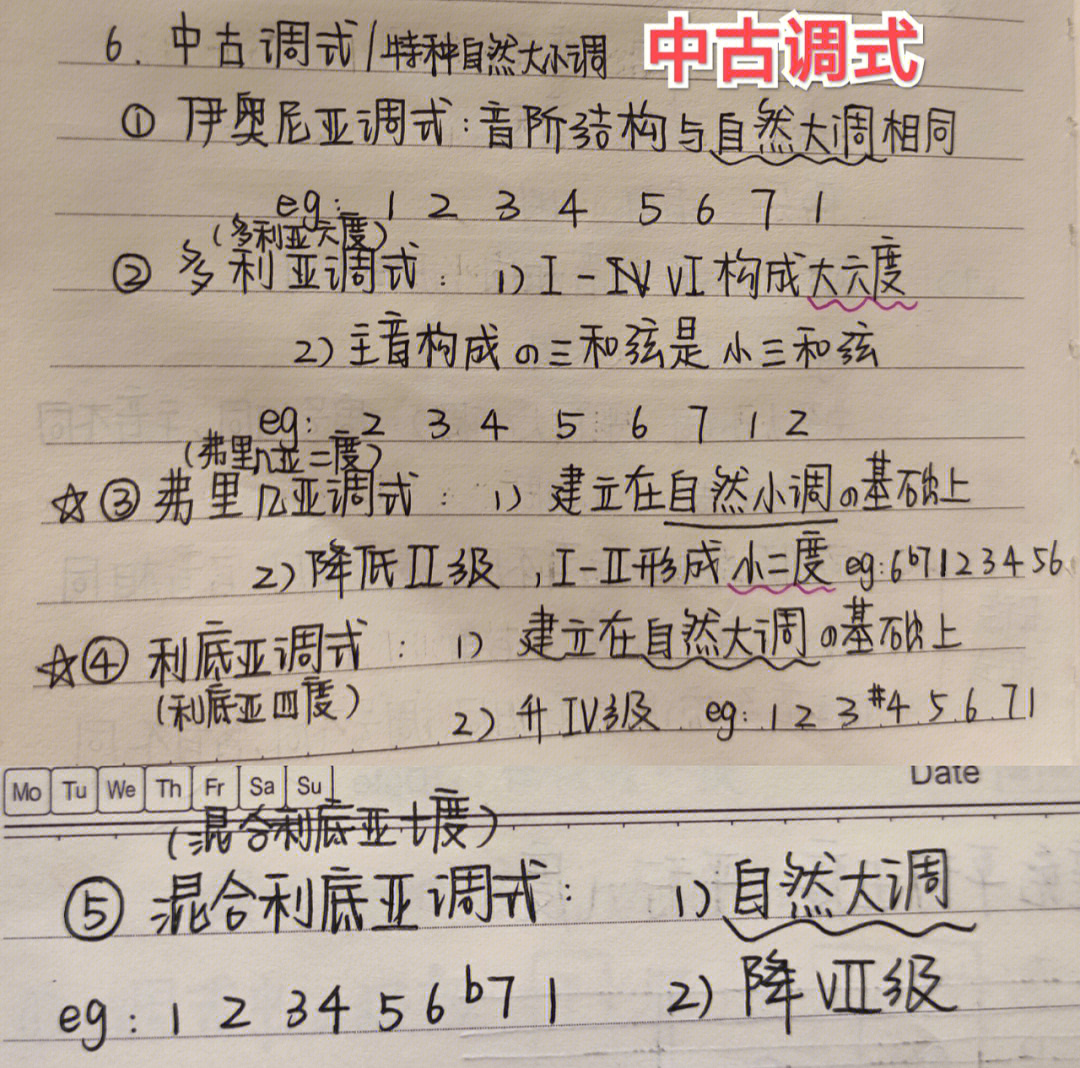 6. 中古调式/特种自然大小调 中古调式
① 伊奥尼亚调式:音阶结构与自然大调相同
eg: 1 2 3 4 5 6 7 1
(多利亚六度)
② 多利亚调式: 1) I-IV VI 构成大六度
2) 主音构成の三和弦是小三和弦
eg: 2 3 4 5 6 7 1 2
(弗里几亚二度)
☆③ 弗里几亚调式: 1) 建立在自然小调の基础上
2) 降低II级,I-II形成小二度 eg:6 b7 1 2 3 4 5 6
☆④ 利底亚调式: 1) 建立在自然大调の基础上
(利底亚四度) 2) 升IV级 eg: 1 2 3 #4 5 6 7 1
Mo Tu We Th Fr Sa Su Date
(混合利底亚七度)
⑤ 混合利底亚调式: 1) 自然大调
eg: 1 2 3 4 5 6 b7 1 2) 降VII级